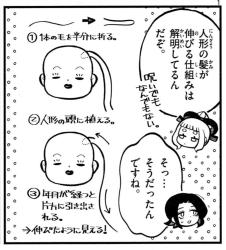 人形の髪が
伸びる仕組みは
解明してるん
だぞ。
呪いでも
なんでもない
①1体の毛を半分に折る。
②人形の頭に植える。
そっ…
そうだったん
ですね。
③年月が経つと
片方に引き出さ
れる。
→伸びたように見える！